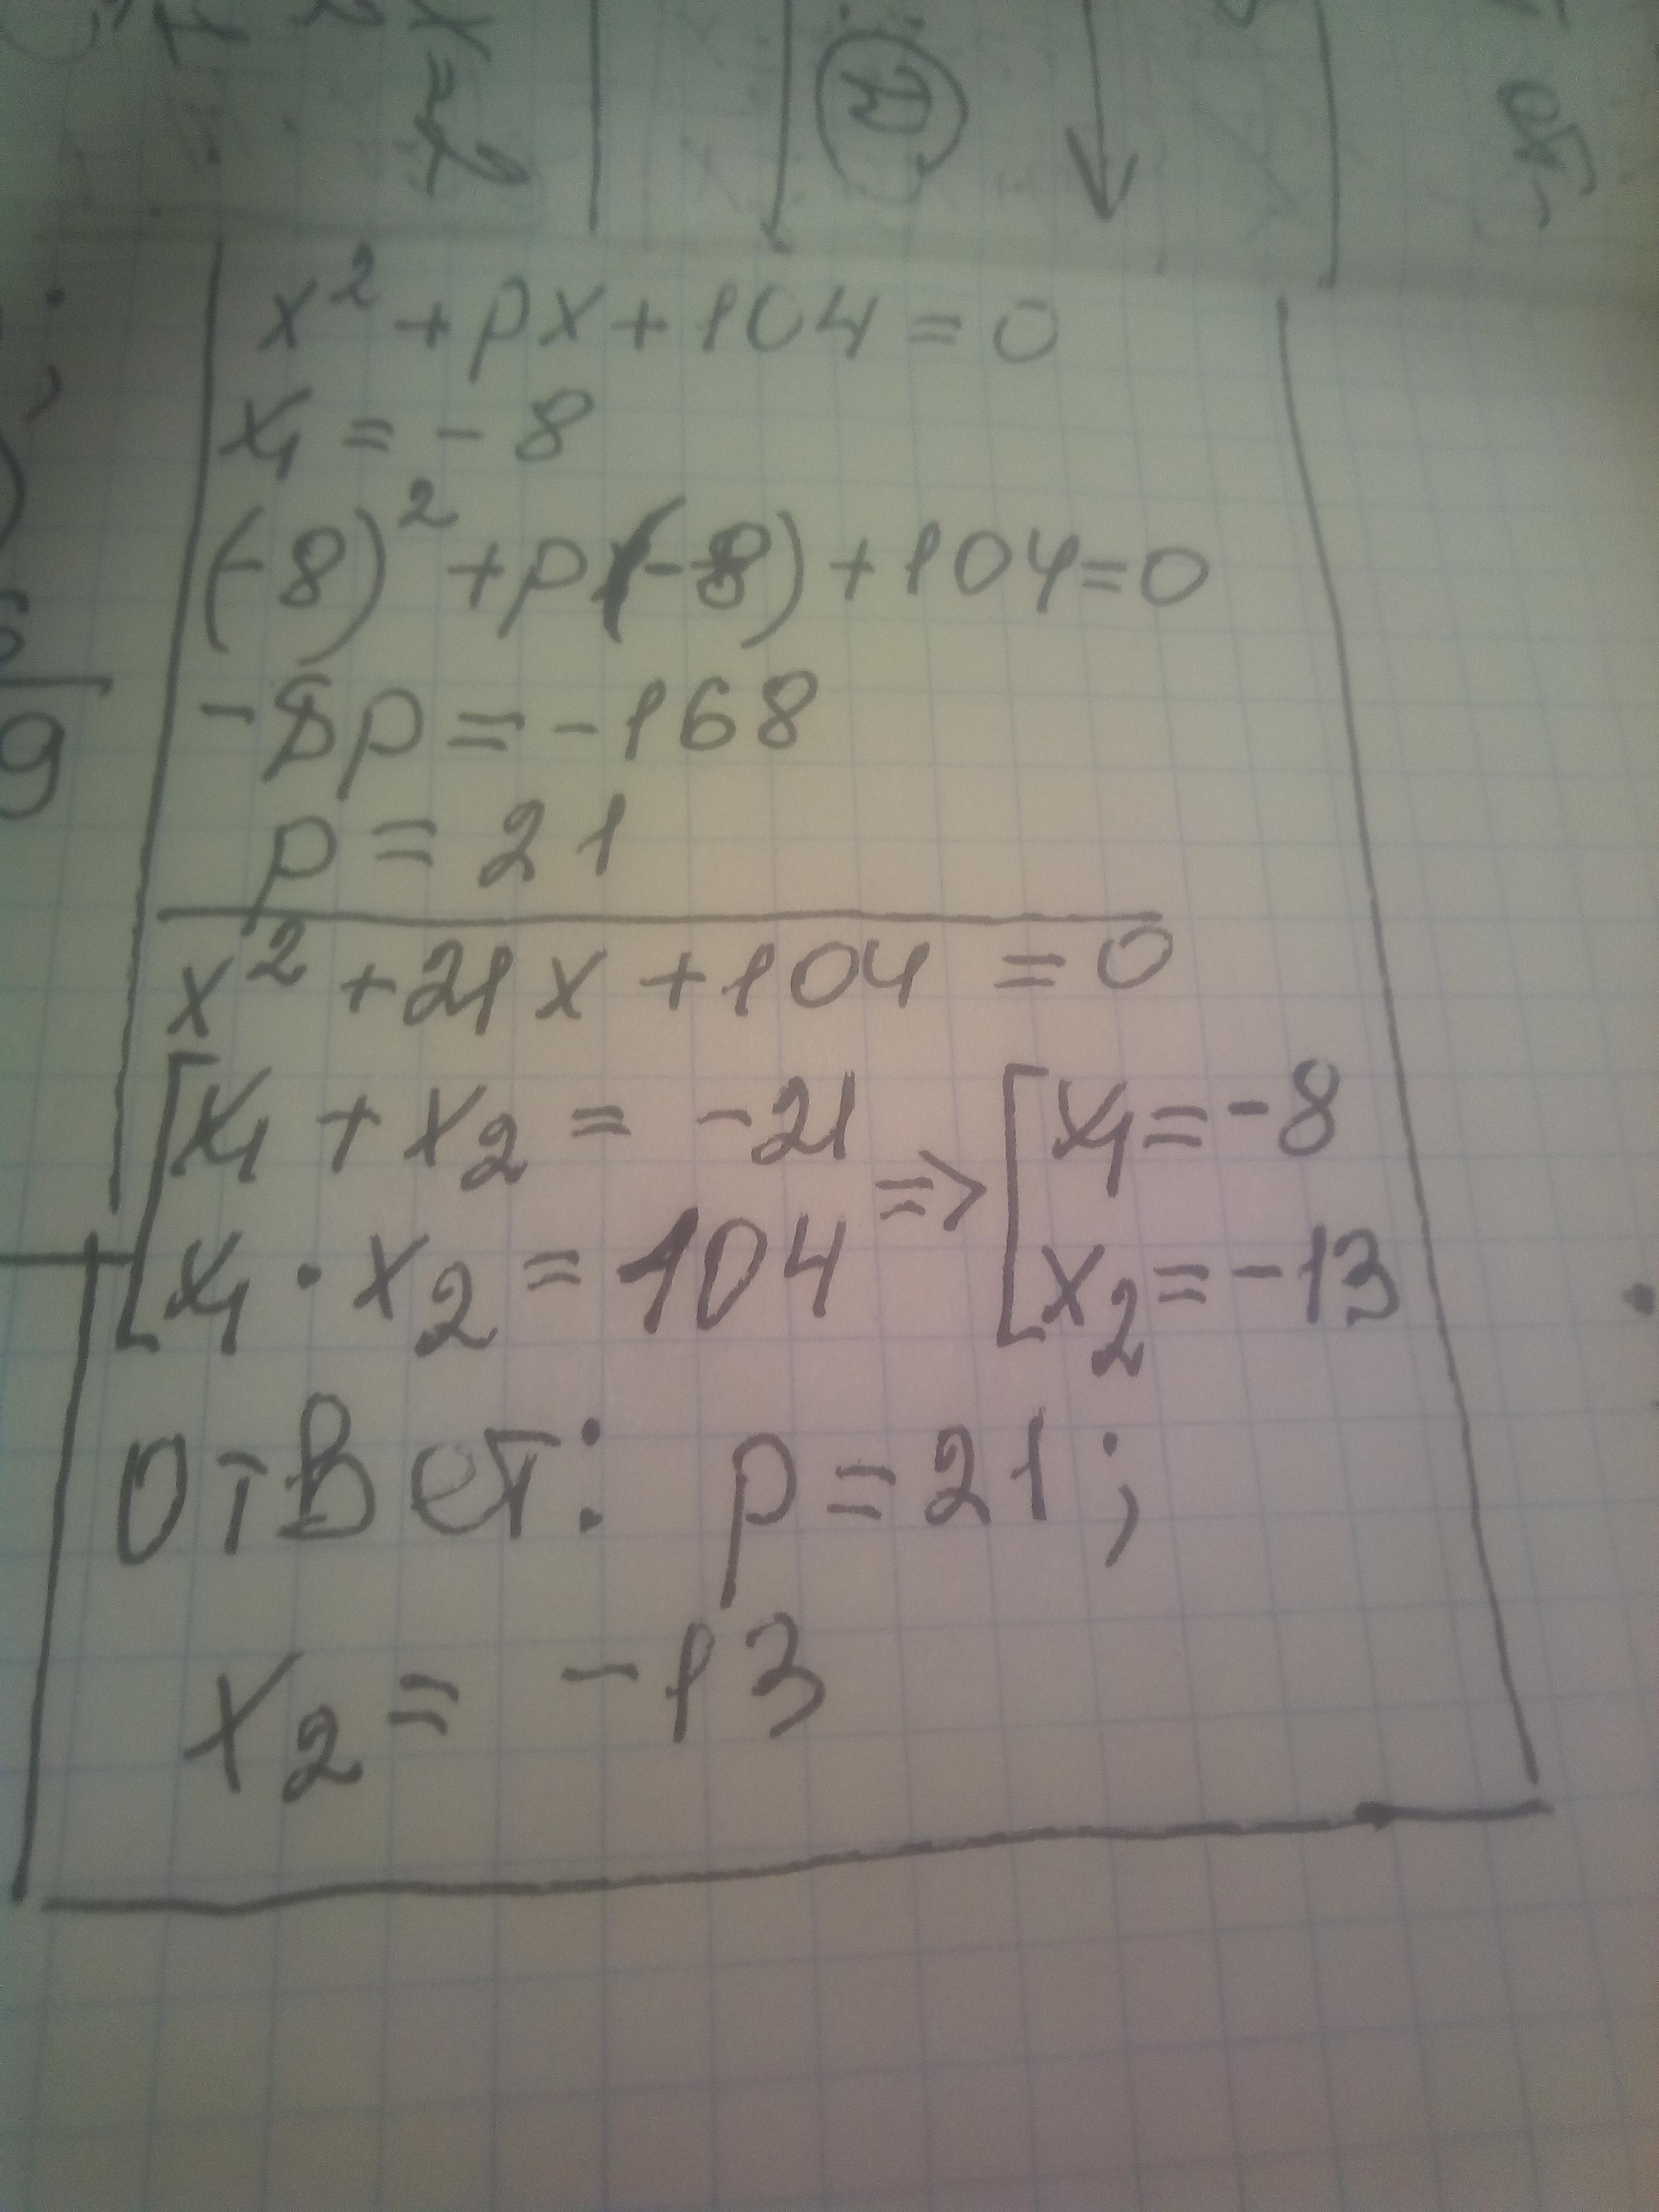 x² + px + 104 = 0
x₁ = - 8
(-8)² + p(-8) + 104 = 0
- 8p = - 168
p = 21
x² + 21x + 104 = 0
[x₁ + x₂ = - 21 => [x₁ = - 8
x₁ · x₂ = 104 x₂ = - 13
Ответ: p = 21;
x₂ = - 13